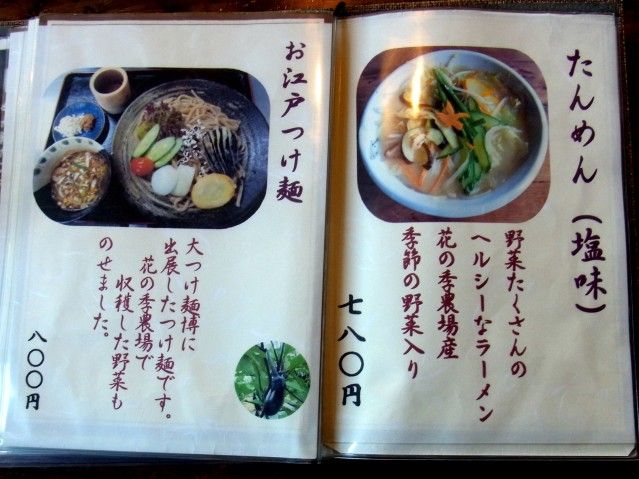 たんめん（塩味）
野菜たくさんの
ヘルシーなラーメン
花の季農場産
季節の野菜入り
七八〇円
お江戸つけ麺
大つけ麺博に
出展したつけ麺です。
花の季農場で
収穫した野菜も
のせました。
八〇〇円